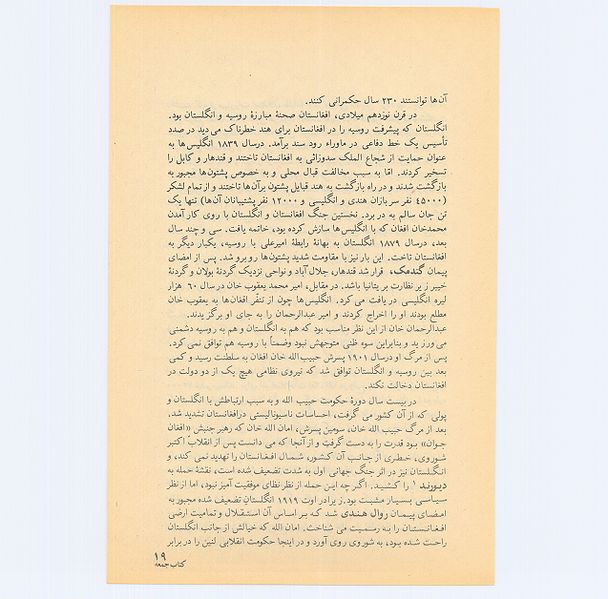 آن‌ها توانستند ۲۳۰ سال حکمرانی کنند.
در قرن نوزدهم میلادی، افغانستان صحنهٔ مبارزهٔ روسیه و انگلستان بود.
انگلستان که پیشرفت روسیه را در افغانستان برای هند خطرناک می دید در صدد
تأسیس یک خط دفاعی در ماوراء رود سند برآمد. درسال ۱۸۳۹ انگلیس‌ها به
عنوان حمایت از شجاع الملک سدوزائی به افغانستان تاختند و قندهار و کابل را
تسخیر کردند. امّا به سبب مخالفت قبال محلی و به خصوص پشتون‌ها مجبور به
بازگشت شدند و در راه بازگشت به هند قبایل پشتون برآن‌ها تاختند و از تمام لشکر
(۴۵۰۰۰ نفر سربازان هندی و انگلیسی و ۱۲۰۰۰ نفر پشتیبانان آن‌ها) تنها یک
تن جان سالم به در برد. نخستین جنگ افغانستان و انگلستان با روی کار آمدن
محمدخان افغان که با انگلیس‌ها سازش کرده بود، خاتمه یافت. سی و چند سال
بعد، درسال ۱۸۷۹ انگلستان به بهانهٔ رابطهٔ امیرعلی با روسیه، یکبار دیگر به
افغانستان تاخت. این بار نیز با مقاومت شدید پشتون‌ها روبرو شد. پس از امضای
پیمان گندمک، قرار شد قندهار، جلال آباد و نواحی نزدیک گردنهٔ بولان و گردنهٔ
خیبر زیر نظارت بریتانیا باشد. در مقابل، امیر محمد یعقوب خان در سال ۶۰ هزار
لیره انگلیسی دریافت می کرد. انگلیس‌ها چون از تنفّر افغان‌ها به یعقوب خان
مطلع بودند او را اخراج کردند و امیر عبدالرحمان را به جای او برگزیدند.
عبدالرحمان خان از این نظر مناسب بود که هم به انگلستان و هم به روسیه دشمنی
می ورزید و بنابراین سوء ظنی متوجهش نبود وضمناً با روسیه هم توافق نمی کرد.
پس از مرگ او درسال ۱۹۰۱ پسرش حبیب‌الله خان افغان به سلطنت رسید و کمی
بعد بین روسیه و انگلستان توافق شد که نیروی نظامی هیچ یک از دو دولت در
افغانستان دخالت نکند.
در بیست سال دورهٔ حکومت حبیب الله و به سبب ارتباطش با انگلستان و
پولی که از آن کشور می گرفت، احساسات ناسیونالیستی درافغانستان تشدید شد.
بعد از مرگ حبیب الله خان، سومین پسرش، امان الله خان که رهبر جنبش «افغان
جوان» بود قدرت را به دست گرفت و از آنجا که می دانست پس از انقلاب اکتبر
شوروی، خطری از جانب آن کشور، شمال افغانستان را تهدید نمی کند، و
انگلستان نیز در اثر جنگ جهانی اول به شدت تضعیف شده است، نقشهٔ حمله به
دیورند ۱ را کشید. اگر چه این حمله از نظر نظامی موفقیت آمیز نبود، اما از نظر
سیاسی بسیار مثبت بود. زیرا در اوت ۱۹۱۹ انگلستانِ تضعیف شده مجبور به
امضای پیمان روال هندی شد که بر اساس آن استقلال و تمامیت ارضی
افغانستان را به رسمیت می شناخت. امان الله که خیالش از جانب انگلستان
راحت شده بود، به شوروی روی آورد و در اینجا حکومت انقلابی لنین را در برابر
۱۹
کتاب جمعه